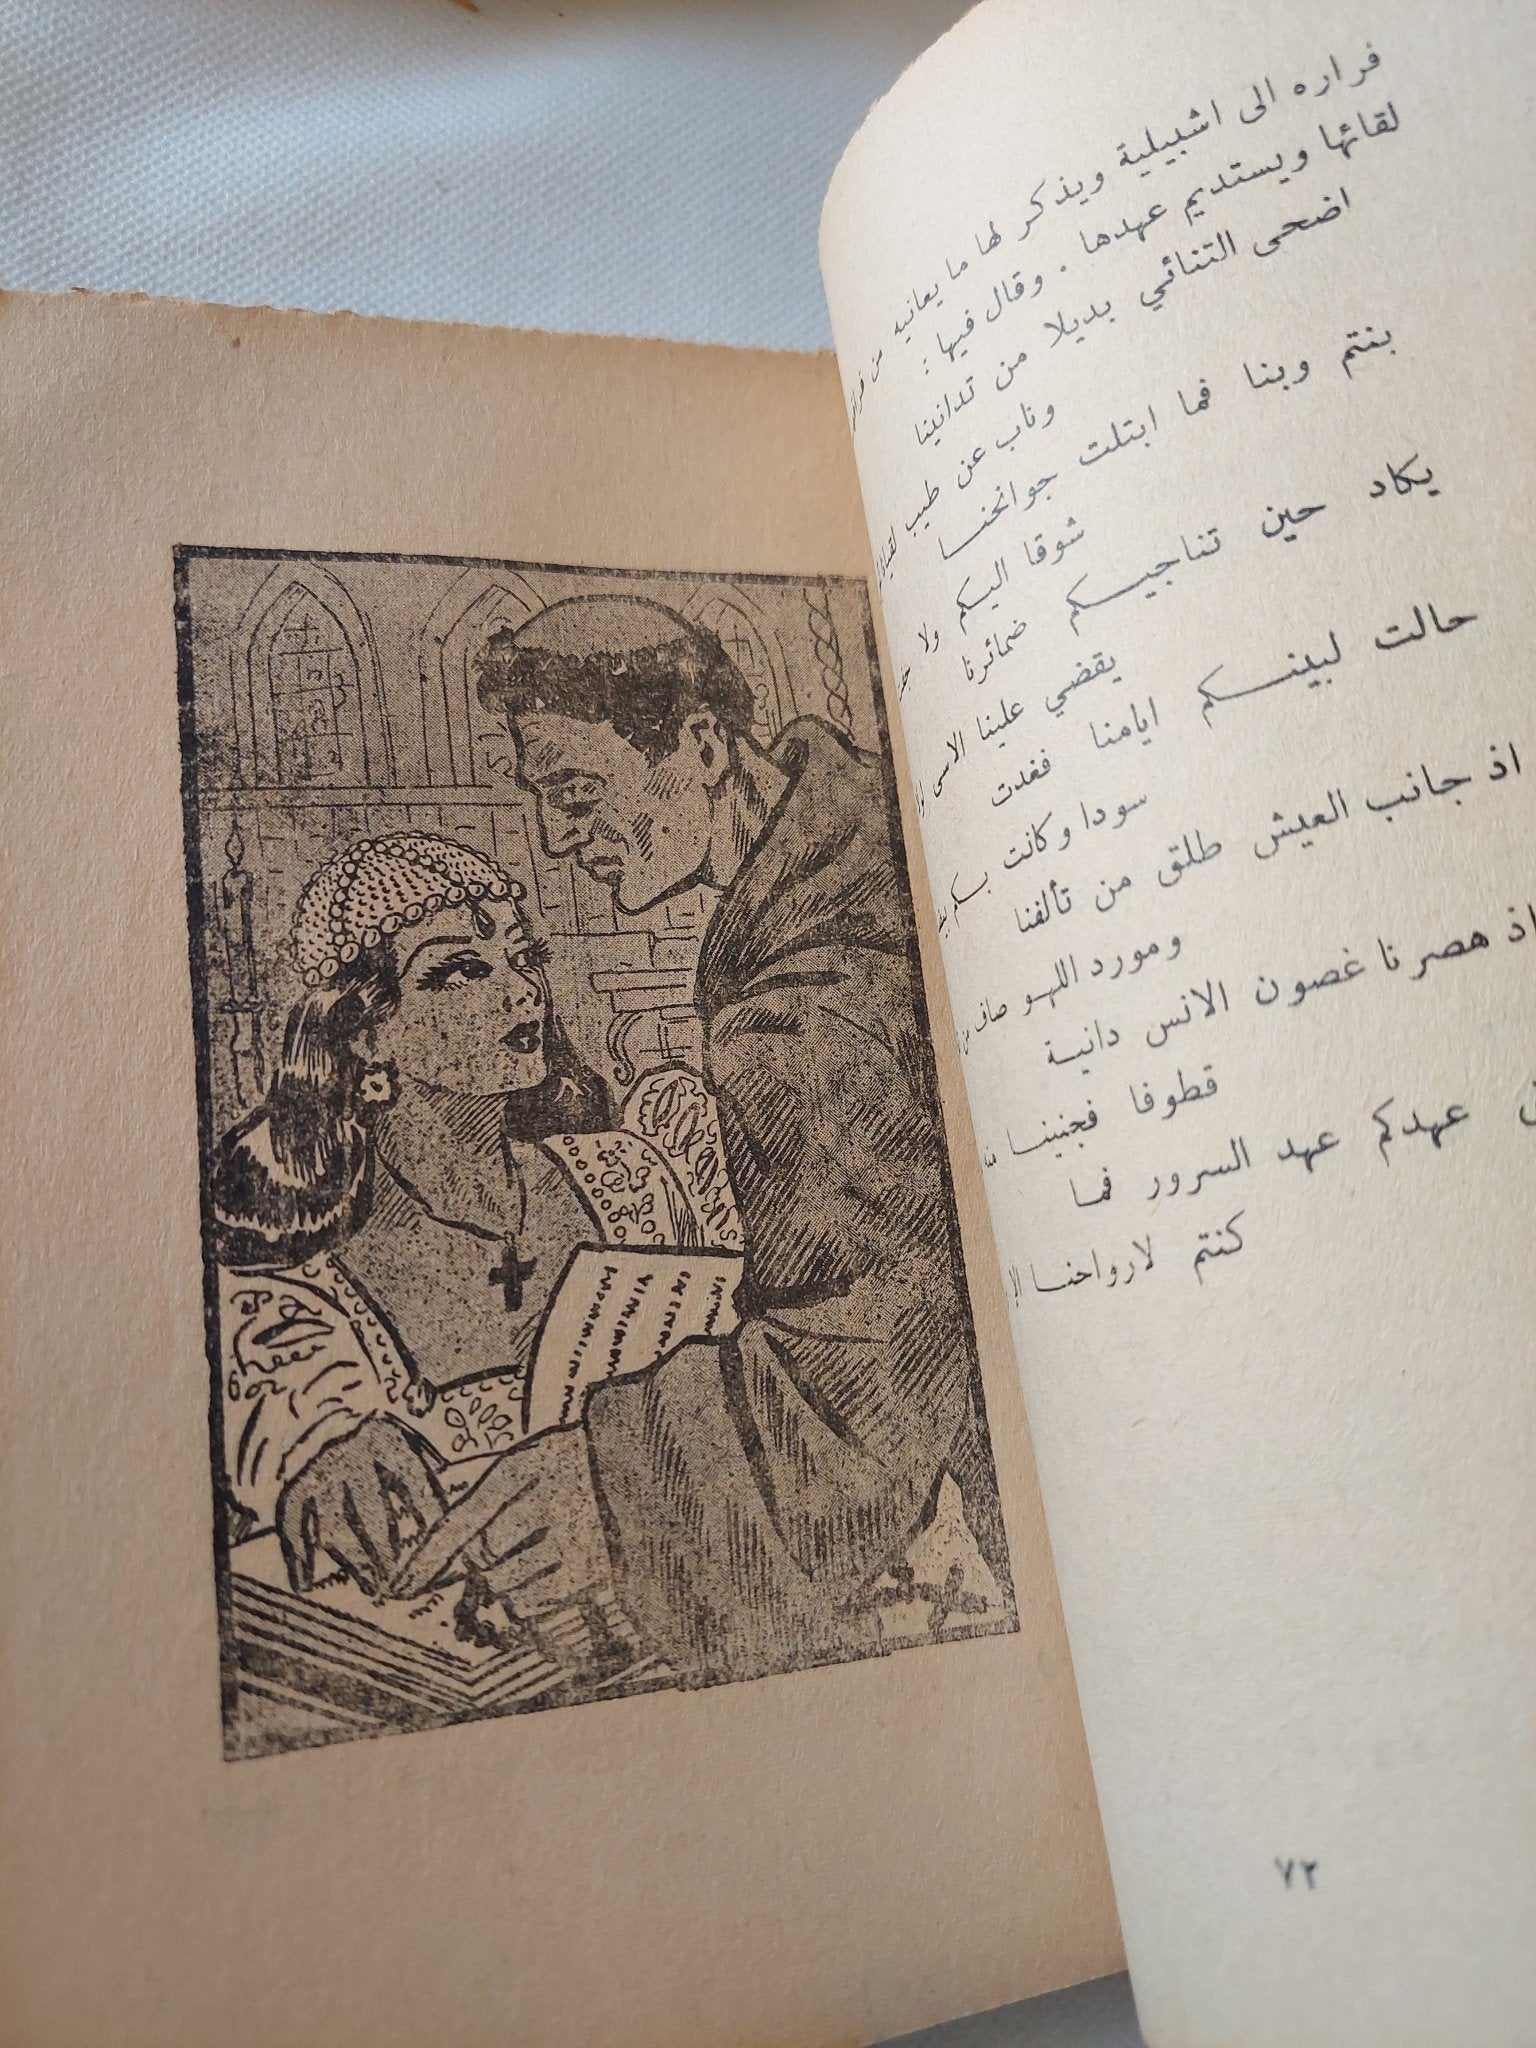 فراره الى اشبيلية ويذكر لها ما يعانيه من
لقائها ويستديم عهدها . وقال فيها :
اضحى التنائي بديلا من تدانينا
وناب عن طيب لقيانا
بنتم وبنا فما ابتلت جوانحنا
شوقا اليكم ولا
يكاد حين تناجيكم ضمائرنا
يقضي علينا الاسى
حالت لبينكم ايامنا فغدت
سودا وكانت بكم
اذ جانب العيش طلق من تألفنا
ومورد اللهو صاف من
اذ هصرنا غصون الانس دانية
قطوفا فجنينا
عهدكم عهد السرور فما
كنتم لارواحنا الا
٧٢